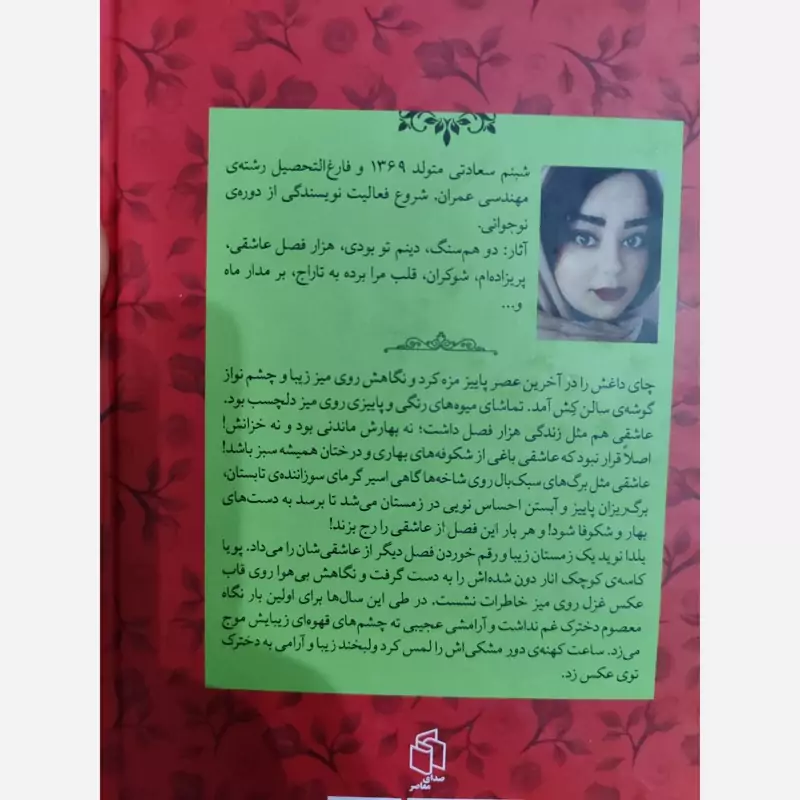 شبنم سعادتی متولد ۱۳۶۹ و فارغ‌التحصیل رشته‌ی
مهندسی عمران. شروع فعالیت نویسندگی از دوره‌ی
نوجوانی.
آثار: دو هم‌سنگ، دینم تو بودی، هزار فصل عاشقی،
پریزاده‌ام، شوکران، قلب مرا برده به تاراج، بر مدار ماه
و...
چای داغش را در آخرین عصر پاییز مزه کرد و نگاهش روی میز زیبا و چشم نواز
گوشه‌ی سالن کِش آمد. تماشای میوه‌های رنگی و پاییزی روی میز دلچسب بود.
عاشقی هم مثل زندگی هزار فصل داشت؛ نه بهارش ماندنی بود و نه خزانش!
اصلاً قرار نبود که عاشقی باغی از شکوفه‌های بهاری و درختان همیشه سبز باشد!
عاشقی مثل برگ‌های سبک‌بال روی شاخه‌ها گاهی اسیر گرمای سوزاننده‌ی تابستان،
برگ‌ریزان پاییز و آبستن احساس نویی در زمستان می‌شد تا برسد به دست‌های
بهار و شکوفا شود! و هر بار این فصل از عاشقی را رج بزند!
یلدا نوید یک زمستان زیبا و رقم خوردن فصل دیگر از عاشقی‌شان را می‌داد. پویا
کاسه‌ی کوچک انار دون شده‌اش را به دست گرفت و نگاهش بی‌هوا روی قاب
عکس غزل روی میز خاطرات نشست. در طی این سال‌ها برای اولین بار نگاه
معصوم دخترک غم نداشت و آرامشی عجیبی ته چشم‌های قهوه‌ای زیبایش موج
می‌زد. ساعت کهنه‌ی دور مشکی‌اش را لمس کرد ولبخند زیبا و آرامی به دخترک
توی عکس زد.
صدای
معاصر